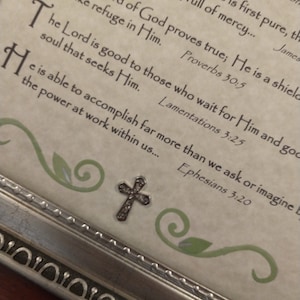 full of mercy...
is first pure, th
James
d of God proves true, He is a shield
ke refuge in Him.
Proverbs 30:5
The Lord is good to those who wait for Him and good
soul that seeks Him.
Lamentations 3:25
He is able to accomplish far more than we ask or imagine b
the power at work within us...
Ephesians 3:20